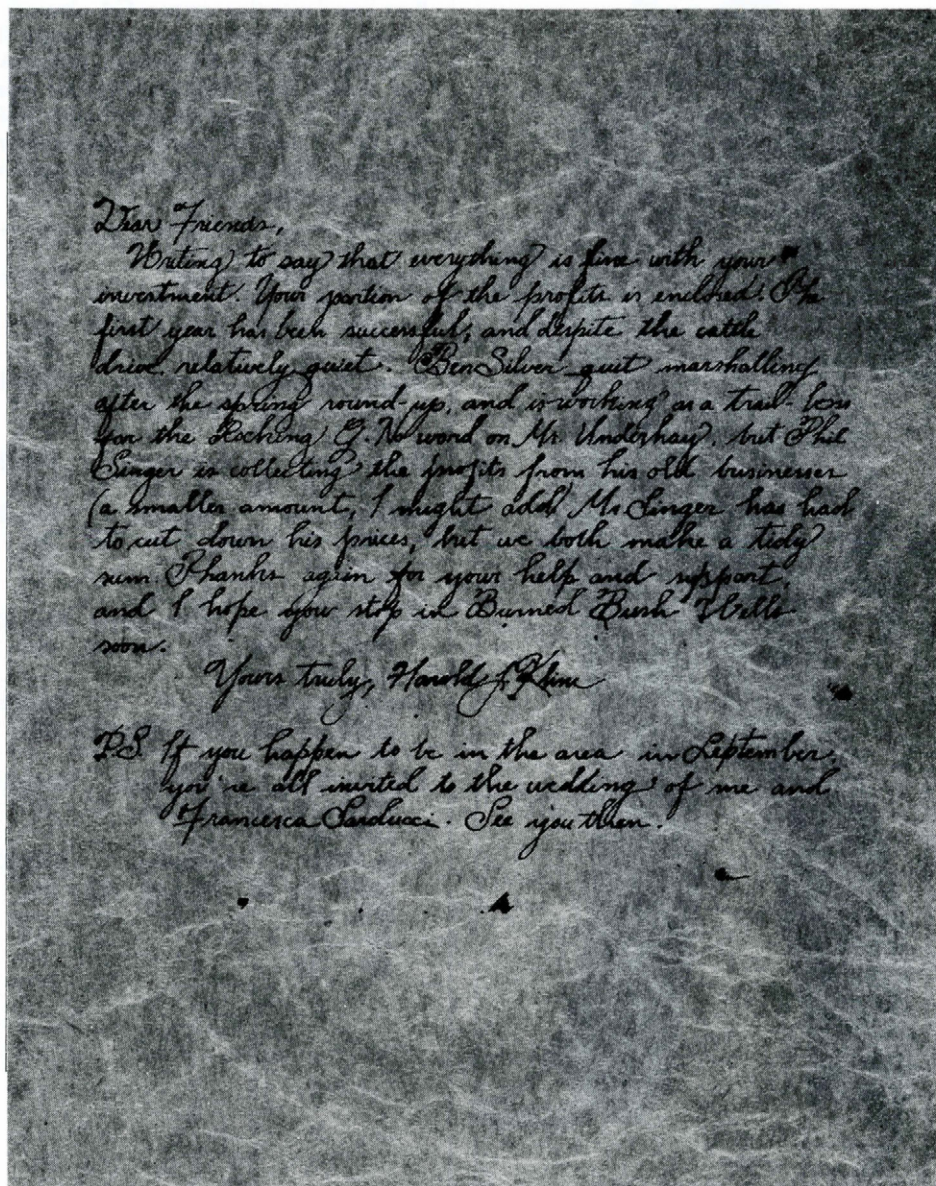 Dear Friends,
Writing to say that everything is fine with your
investment. Your portion of the profits is enclosed. The
first year has been successful, and despite the cattle
drive, relatively quiet. Ben Silver quit marshalling
after the spring round up, and is working as a trail-boss
for the Rocking G. No word on Mr. Underhay, but Phil
Singer is collecting the profits from his old businesses
(a smaller amount, I might add, Mr Singer has had
to cut down his prices, but we both make a tidy
sum. Thanks again for your help and support,
and I hope you stop in Burned Bush Wells
soon.
Yours truly, Harold J. Kline
P.S. If you happen to be in the area in September,
you're all invited to the wedding of me and
Francesca Sarducci. See you then.